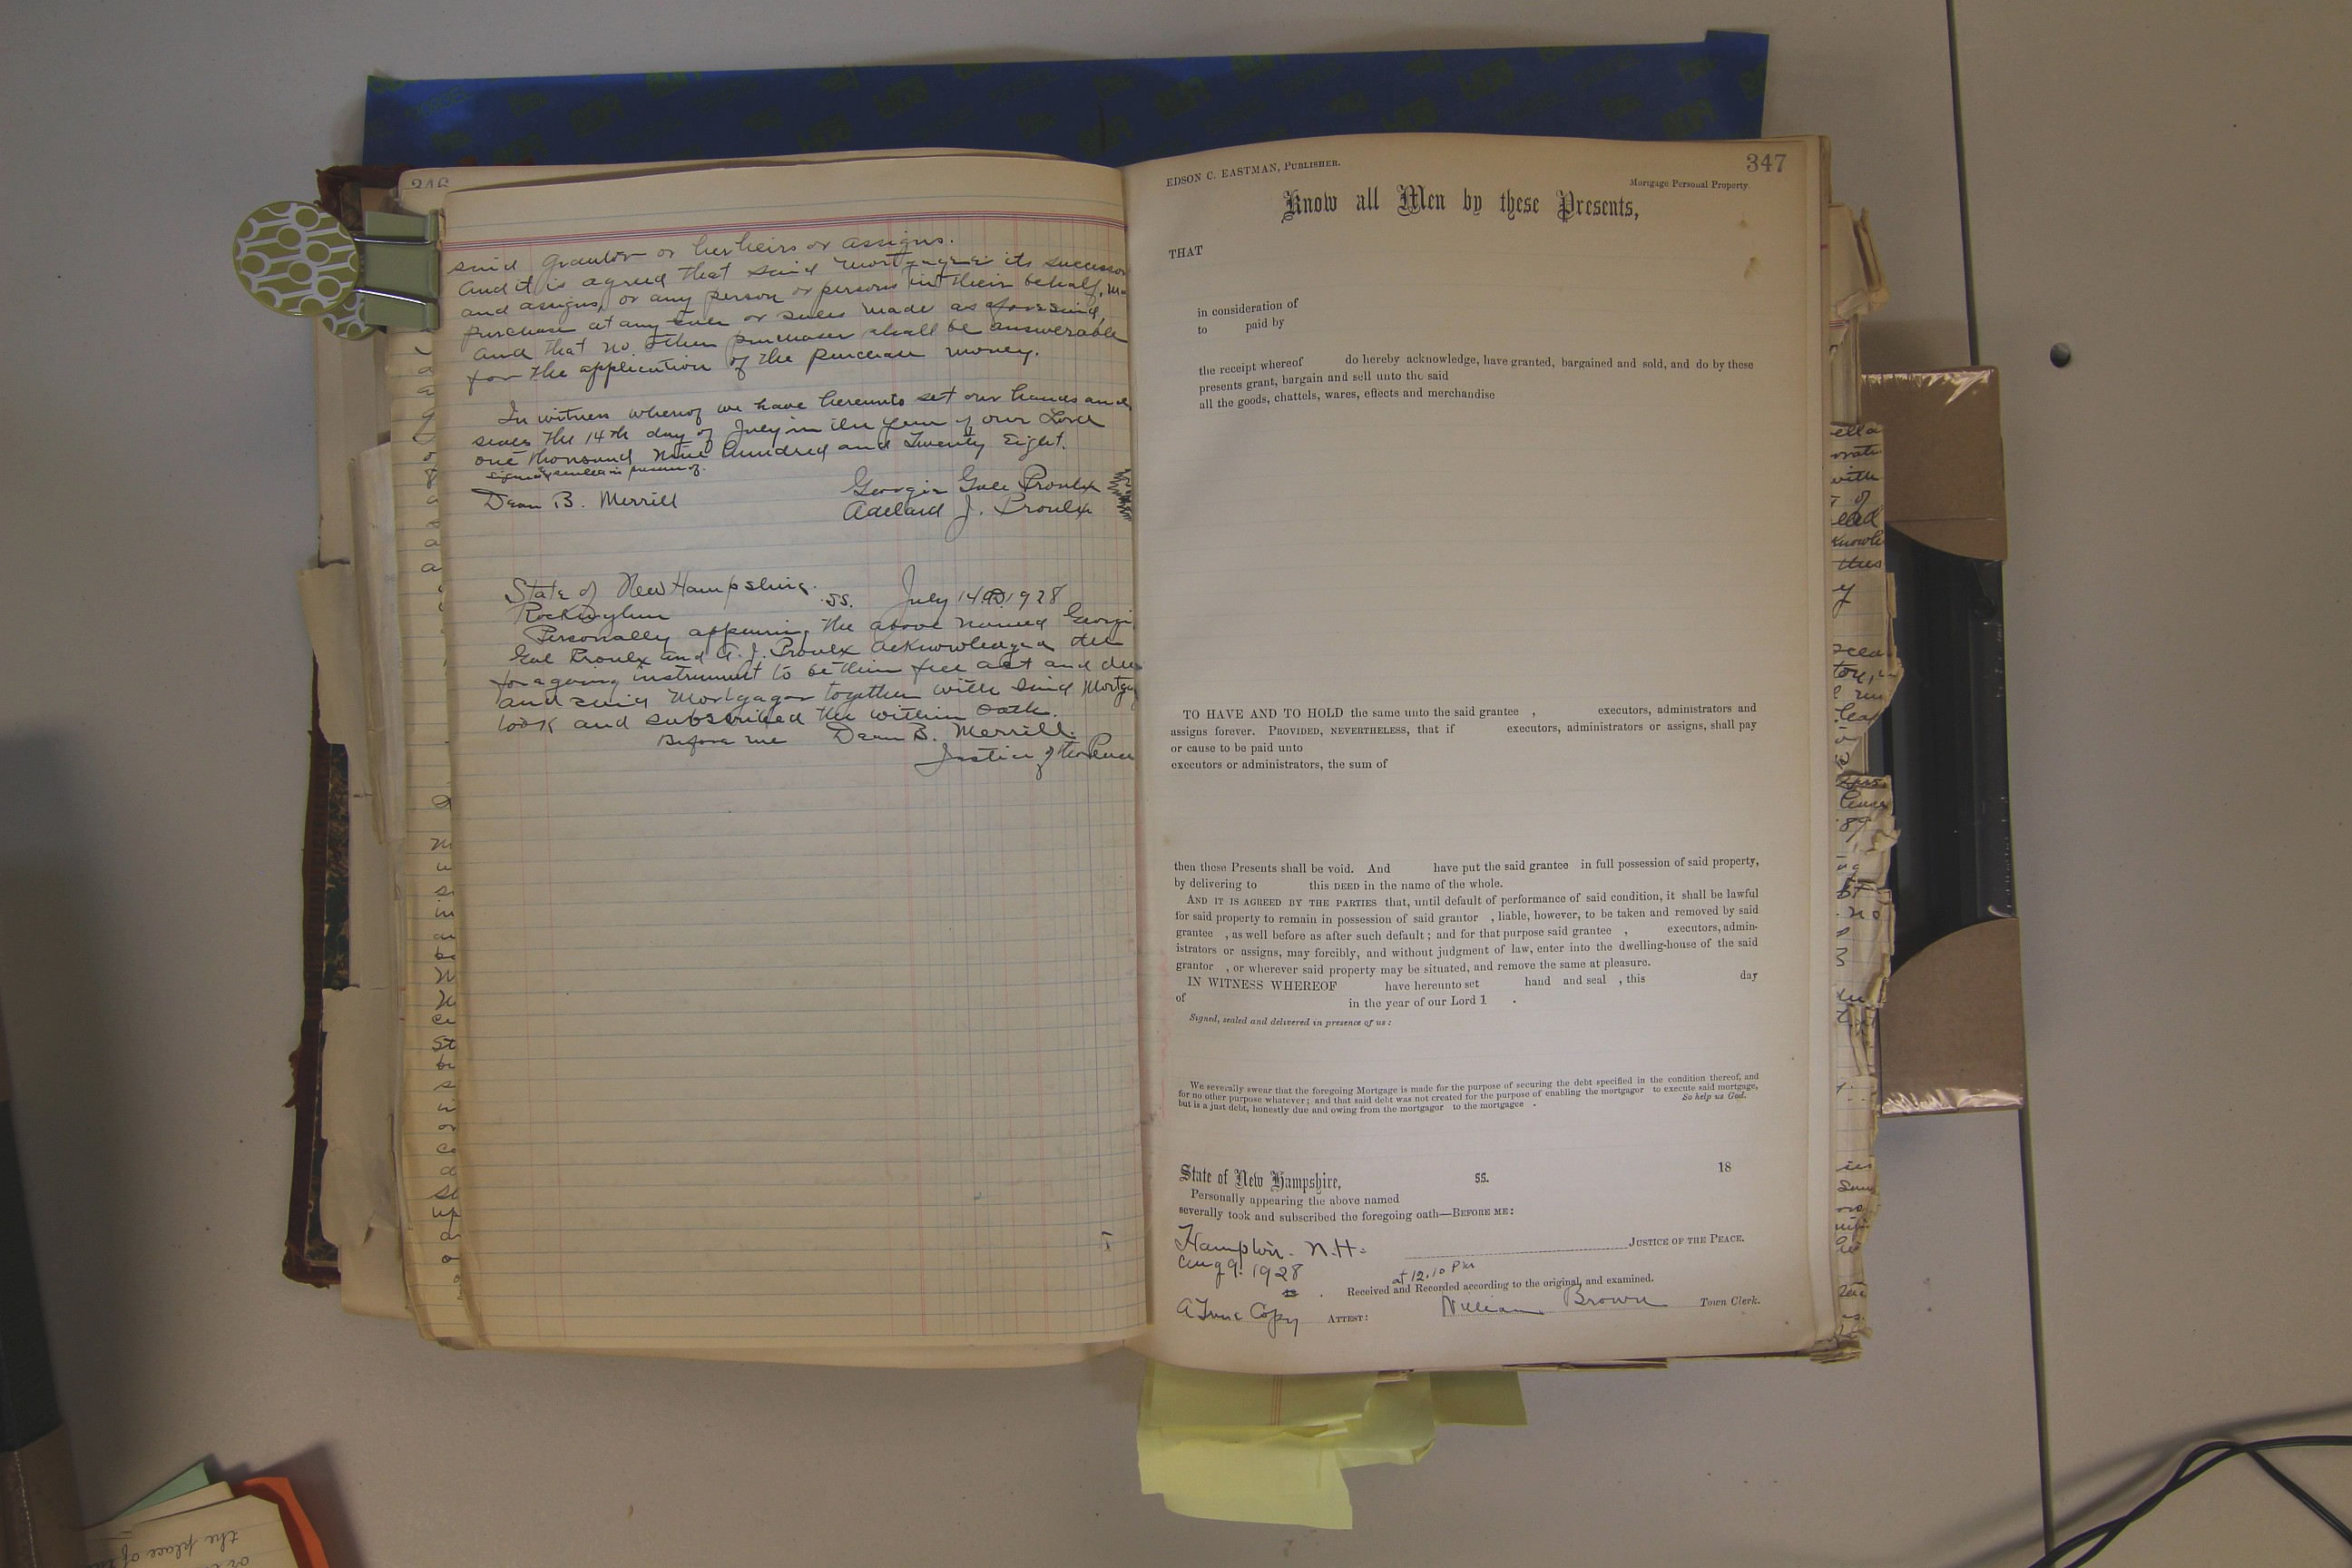 346
said Grantor or her heirs or assigns.
And it is agreed that said Mortgagee its successor
and assigns, or any person or persons in their behalf, ma
purchase at any sale or sales made as aforesaid,
and that no other purchaser shall be answerable
for the application of the purchase money.
In witness whereof we have hereunto set our hands and
seals the 14th day of July in the year of our Lord
one thousand nine hundred and Twenty Eight.
Signed & sealed in presence of.
Dean B. Merrill
Georgia Gale Proulx
Adelard J. Proulx
State of New Hampshire.
Rockingham SS. July 14 AD 1928
Personally appearing the above named Georgi
Gale Proulx and A. J. Proulx acknowledged the
foregoing instrument to be their free act and dee
and said Mortgagor together with said Mortga
took and subscribed the within oath.
Before me Dean B. Merrill.
Justice of the Peace
EDSON C. EASTMAN, PUBLISHER.
347
Mortgage Personal Property.
Know all Men by these Presents,
THAT
in consideration of
to paid by
the receipt whereof do hereby acknowledge, have granted, bargained and sold, and do by these
presents grant, bargain and sell unto the said
all the goods, chattels, wares, effects and merchandise
TO HAVE AND TO HOLD the same unto the said grantee , executors, administrators and
assigns forever. PROVIDED, NEVERTHELESS, that if executors, administrators or assigns, shall pay
or cause to be paid unto
executors or administrators, the sum of
then these Presents shall be void. And have put the said grantee in full possession of said property,
by delivering to this DEED in the name of the whole.
AND IT IS AGREED BY THE PARTIES that, until default of performance of said condition, it shall be lawful
for said property to remain in possession of said grantor , liable, however, to be taken and removed by said
grantee , as well before as after such default; and for that purpose said grantee , executors, admin-
istrators or assigns, may forcibly, and without judgment of law, enter into the dwelling-house of the said
grantor , or wherever said property may be situated, and remove the same at pleasure.
IN WITNESS WHEREOF have hereunto set hand and seal , this day
of in the year of our Lord 1 .
Signed, sealed and delivered in presence of us:
We severally swear that the foregoing Mortgage is made for the purpose of securing the debt specified in the condition thereof, and
for no other purpose whatever; and that said debt was not created for the purpose of enabling the mortgagor to execute said mortgage,
but is a just debt, honestly due and owing from the mortgagor to the mortgagee . So help us God.
State of New Hampshire, SS. 18
Personally appearing the above named
severally took and subscribed the foregoing oath—BEFORE ME:
Hampton. N.H.
JUSTICE OF THE PEACE.
Aug 9. 1928
at 12.10 PM
Received and Recorded according to the original, and examined.
A True Copy ATTEST: William Brown Town Clerk.
the place of